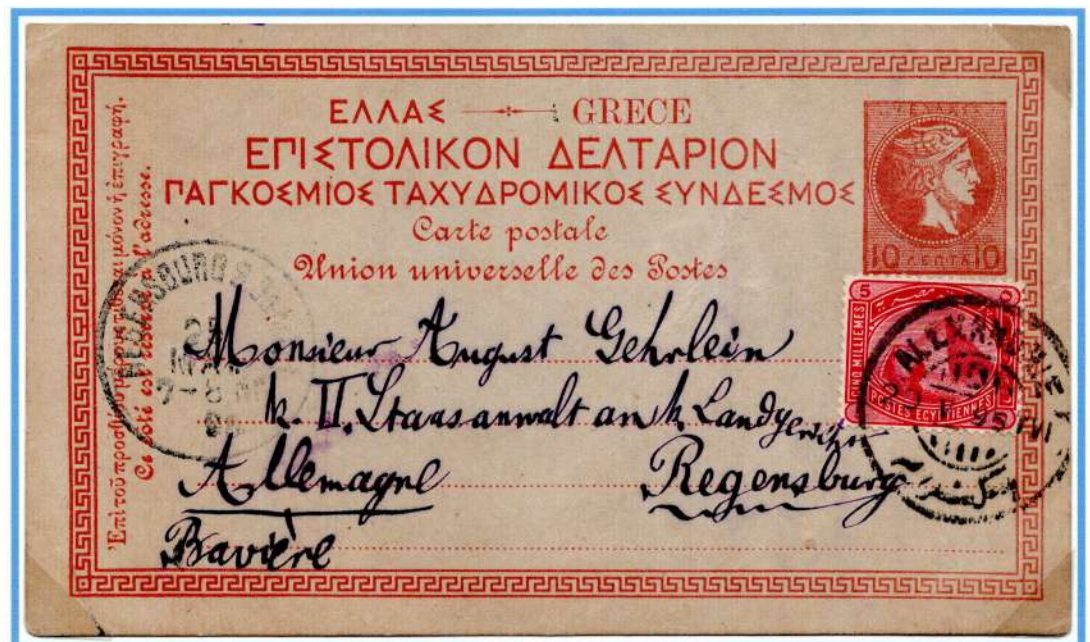 ΕΛΛΑΣ GRECE
ΕΠΙΣΤΟΛΙΚΟΝ ΔΕΛΤΑΡΙΟΝ
ΠΑΓΚΟΣΜΙΟΣ ΤΑΧΥΔΡΟΜΙΚΟΣ ΣΥΝΔΕΣΜΟΣ
Carte postale
Union universelle des Postes
Ἐπὶ τοῦ προσθίου μέρους τίθεται μόνον ἡ ἐπιγραφή.
Ce coté est réservé à l'adresse.
10 ΛΕΠΤΑ 10
5
CINQ MILLIEMES
POSTES EGYPTIENNES
ALEXANDRIE
REGENSBURG
7-8
Monsieur August Gehrlein
k. II. Staatsanwalt am k. Landgericht
Allemagne Regensburg
Bavière